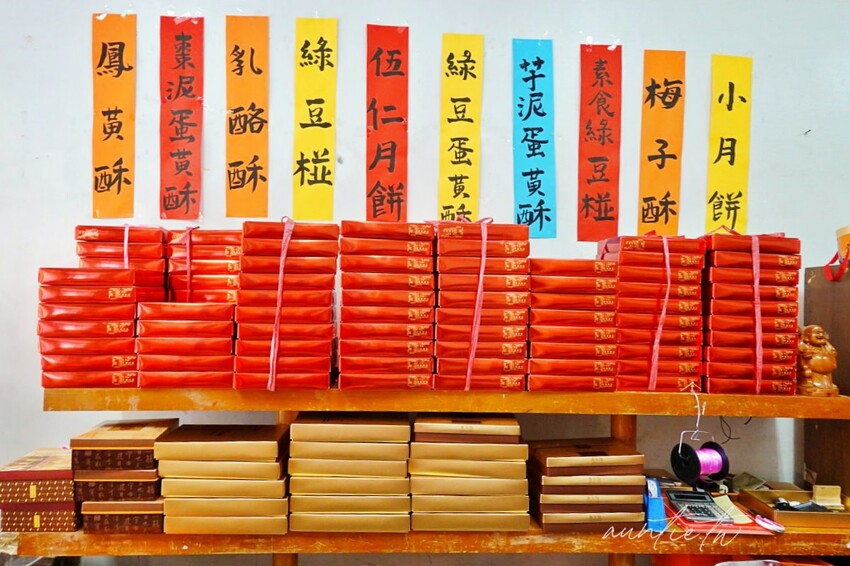 鳳黃酥
棗泥蛋黃酥
乳酪酥
綠豆椪
伍仁月餅
綠豆蛋黃酥
芋泥蛋黃酥
素食綠豆椪
梅子酥
小月餅
auntie.tw